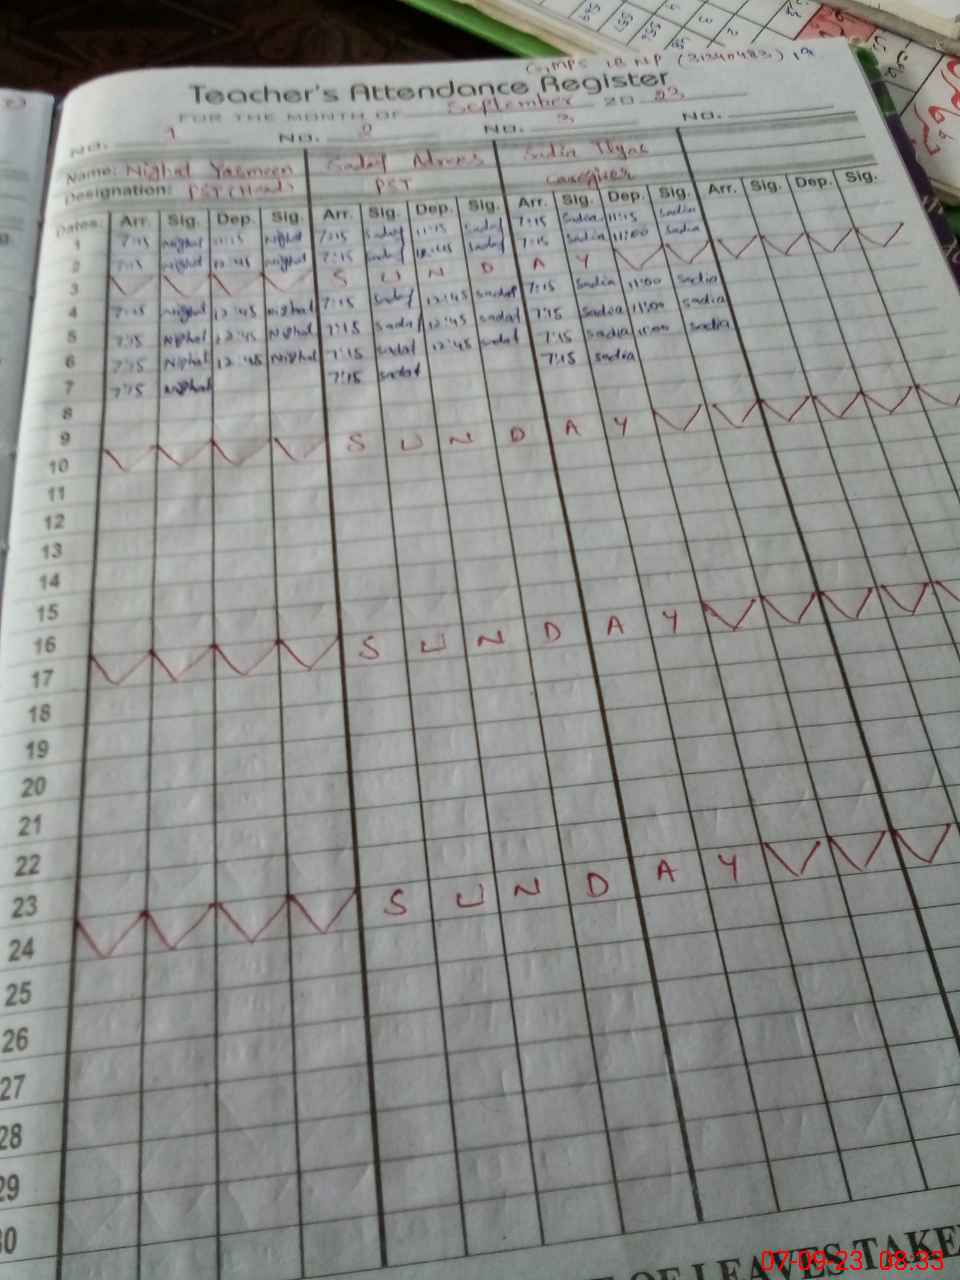 GMPS 18 NP (31340483)
Teacher's Attendance Register
FOR THE MONTH OF September 20 23
No. 1 No. 2 No. 3 No.
Name: Nighat Yasmeen Sadaf Sadia Ilyas
Designation: PST (Head) PST Caregiver
Dates: Arr. Sig. Dep. Sig. Arr. Sig. Dep. Sig. Arr. Sig. Dep. Sig. Arr. Sig. Dep. Sig.
1 7:15 Nighat 11:15 Nighat 7:15 Sadaf 11:15 Sadaf 7:15 Sadia 11:15 Sadia
2 7:15 Nighat 12:45 Nighat 7:15 Sadaf 12:45 Sadaf 7:15 Sadia 11:00 Sadia
3 S U N D A Y
4 7:15 Nighat 12:45 Nighat 7:15 Sadaf 12:45 Sadaf 7:15 Sadia 11:00 Sadia
5 7:15 Nighat 12:45 Nighat 7:15 Sadaf 12:45 Sadaf 7:15 Sadia 11:00 Sadia
6 7:15 Nighat 12:45 Nighat 7:15 Sadaf 12:45 Sadaf 7:15 Sadia 11:00 Sadia
7 7:15 Nighat 7:15 Sadaf 7:15 Sadia
8
9
10 S U N D A Y
11
12
13
14
15
16
17 S U N D A Y
18
19
20
21
22
23
24 S U N D A Y
25
26
27
28
29
30
OF LEAVES TAKE
07-09-23 08:33